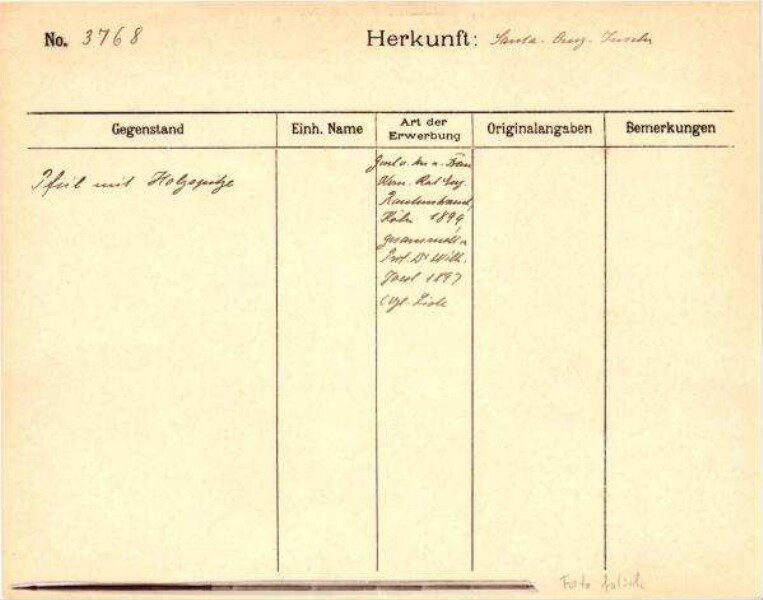 No. 3768
Herkunft: Santa-Cruz-Inseln
Gegenstand
Einh. Name
Art der Erwerbung
Originalangaben
Bemerkungen
Pfeil mit Holzspitze
Rat Eug.
Rautenstrauch,
Köln 1899,
gesammelt v.
Prof. Dr Wilh.
Joest 1897
(vgl. Liste
Foto falsch